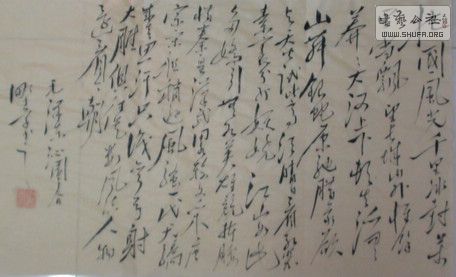 國風光千里冰封萬
里雪飘望长城内外惟馀
莽々大河上下顿失滔々
山舞银蛇原驰腊象欲
与天公试比高须晴日看红装
素裹分外妖娆江山如此
多娇引无数英雄競折腰
惜秦皇漢武略输文采唐
宗宋祖稍逊風骚一代天骄
射
大雕俱往矣数風流人物
還看今朝
毛泽东沁園春
WWW.SHUFA.ORG